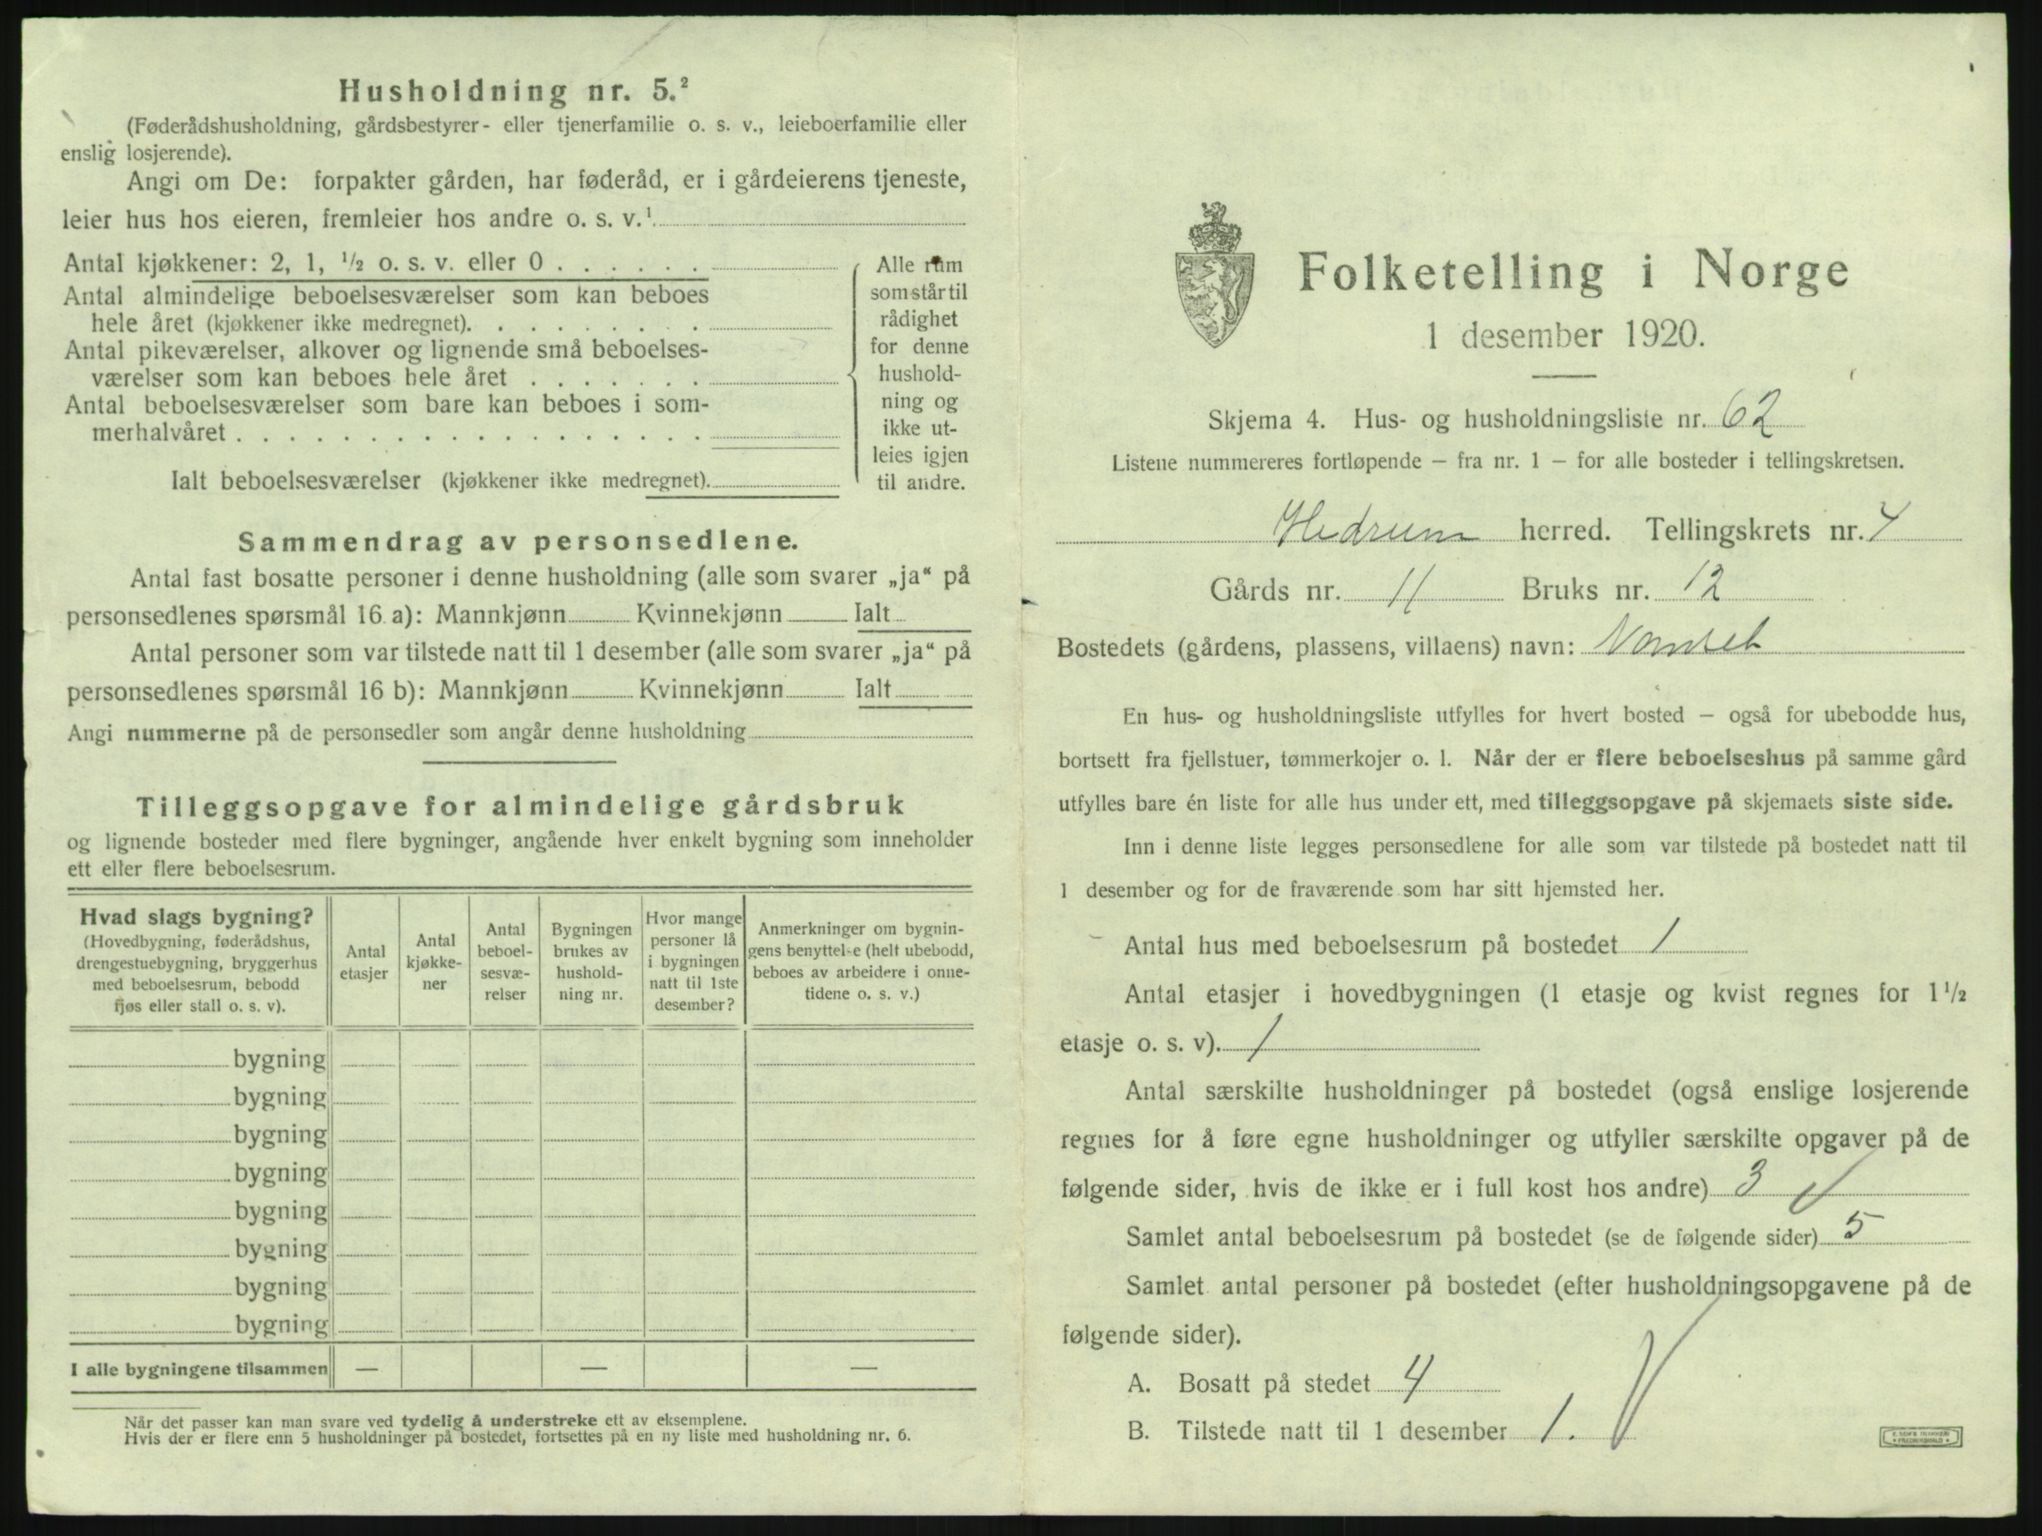 Husholdning nr. 5.²
(Føderådshusholdning, gårdsbestyrer- eller tjenerfamilie o. s. v., leieboerfamilie eller
enslig losjerende).
Angi om De: forpakter gården, har føderåd, er i gårdeierens tjeneste,
leier hus hos eieren, fremleier hos andre o. s. v.¹
Antal kjøkkener: 2, 1, ½ o. s. v. eller 0 . . . . . .
Antal almindelige beboelsesværelser som kan beboes
hele året (kjøkkener ikke medregnet). . . . . . . . .
Antal pikeværelser, alkover og lignende små beboelses-
værelser som kan beboes hele året . . . . . . .
Antal beboelsesværelser som bare kan beboes i som-
merhalvåret . . . . . . . . . . . . . . . . . .
Ialt beboelsesværelser (kjøkkener ikke medregnet).
Alle rum
som står til
rådighet
for denne
hushold-
ning og
ikke ut-
leies igjen
til andre.
Sammendrag av personsedlene.
Antal fast bosatte personer i denne husholdning (alle som svarer „ja“ på
personsedlenes spørsmål 16 a): Mannkjønn Kvinnekjønn Ialt
Antal personer som var tilstede natt til 1 desember (alle som svarer „ja“ på
personsedlenes spørsmål 16 b): Mannkjønn Kvinnekjønn Ialt
Angi nummerne på de personsedler som angår denne husholdning
Tilleggsopgave for almindelige gårdsbruk
og lignende bosteder med flere bygninger, angående hver enkelt bygning som inneholder
ett eller flere beboelsesrum.
Hvad slags bygning?
(Hovedbygning, føderådshus,
drengestuebygning, bryggerhus
med beboelsesrum, bebodd
fjøs eller stall o. s. v).
Antal
etasjer
Antal
kjøkke-
ner
Antal
beboel-
sesvæ-
relser
Bygningen
brukes av
hushold-
ning nr.
Hvor mange
personer lå
i bygningen
natt til 1ste
desember?
Anmerkninger om bygnin-
gens benyttelse (helt ubebodd,
beboes av arbeidere i onne-
tidene o. s. v.)
bygning
bygning
bygning
bygning
bygning
bygning
bygning
bygning
I alle bygningene tilsammen — — —
Når det passer kan man svare ved tydelig å understreke ett av eksemplene.
Hvis der er flere enn 5 husholdninger på bostedet, fortsettes på en ny liste med husholdning nr. 6.
Folketelling i Norge
1 desember 1920.
Skjema 4. Hus- og husholdningsliste nr. 62
Listene nummereres fortløpende – fra nr. 1 – for alle bosteder i tellingskretsen.
Hedrum herred. Tellingskrets nr. 4
Gårds nr. 11 Bruks nr. 12
Bostedets (gårdens, plassens, villaens) navn:
En hus- og husholdningsliste utfylles for hvert bosted – også for ubebodde hus,
bortsett fra fjellstuer, tømmerkojer o. l. Når der er flere beboelseshus på samme gård
utfylles bare én liste for alle hus under ett, med tilleggsopgave på skjemaets siste side.
Inn i denne liste legges personsedlene for alle som var tilstede på bostedet natt til
1 desember og for de fraværende som har sitt hjemsted her.
Antal hus med beboelsesrum på bostedet 1
Antal etasjer i hovedbygningen (1 etasje og kvist regnes for 1½
etasje o. s. v). 1
Antal særskilte husholdninger på bostedet (også enslige losjerende
regnes for å føre egne husholdninger og utfyller særskilte opgaver på de
følgende sider, hvis de ikke er i full kost hos andre) 3
Samlet antal beboelsesrum på bostedet (se de følgende sider) 5
Samlet antal personer på bostedet (efter husholdningsopgavene på de
følgende sider).
A. Bosatt på stedet 4
B. Tilstede natt til 1 desember 1.